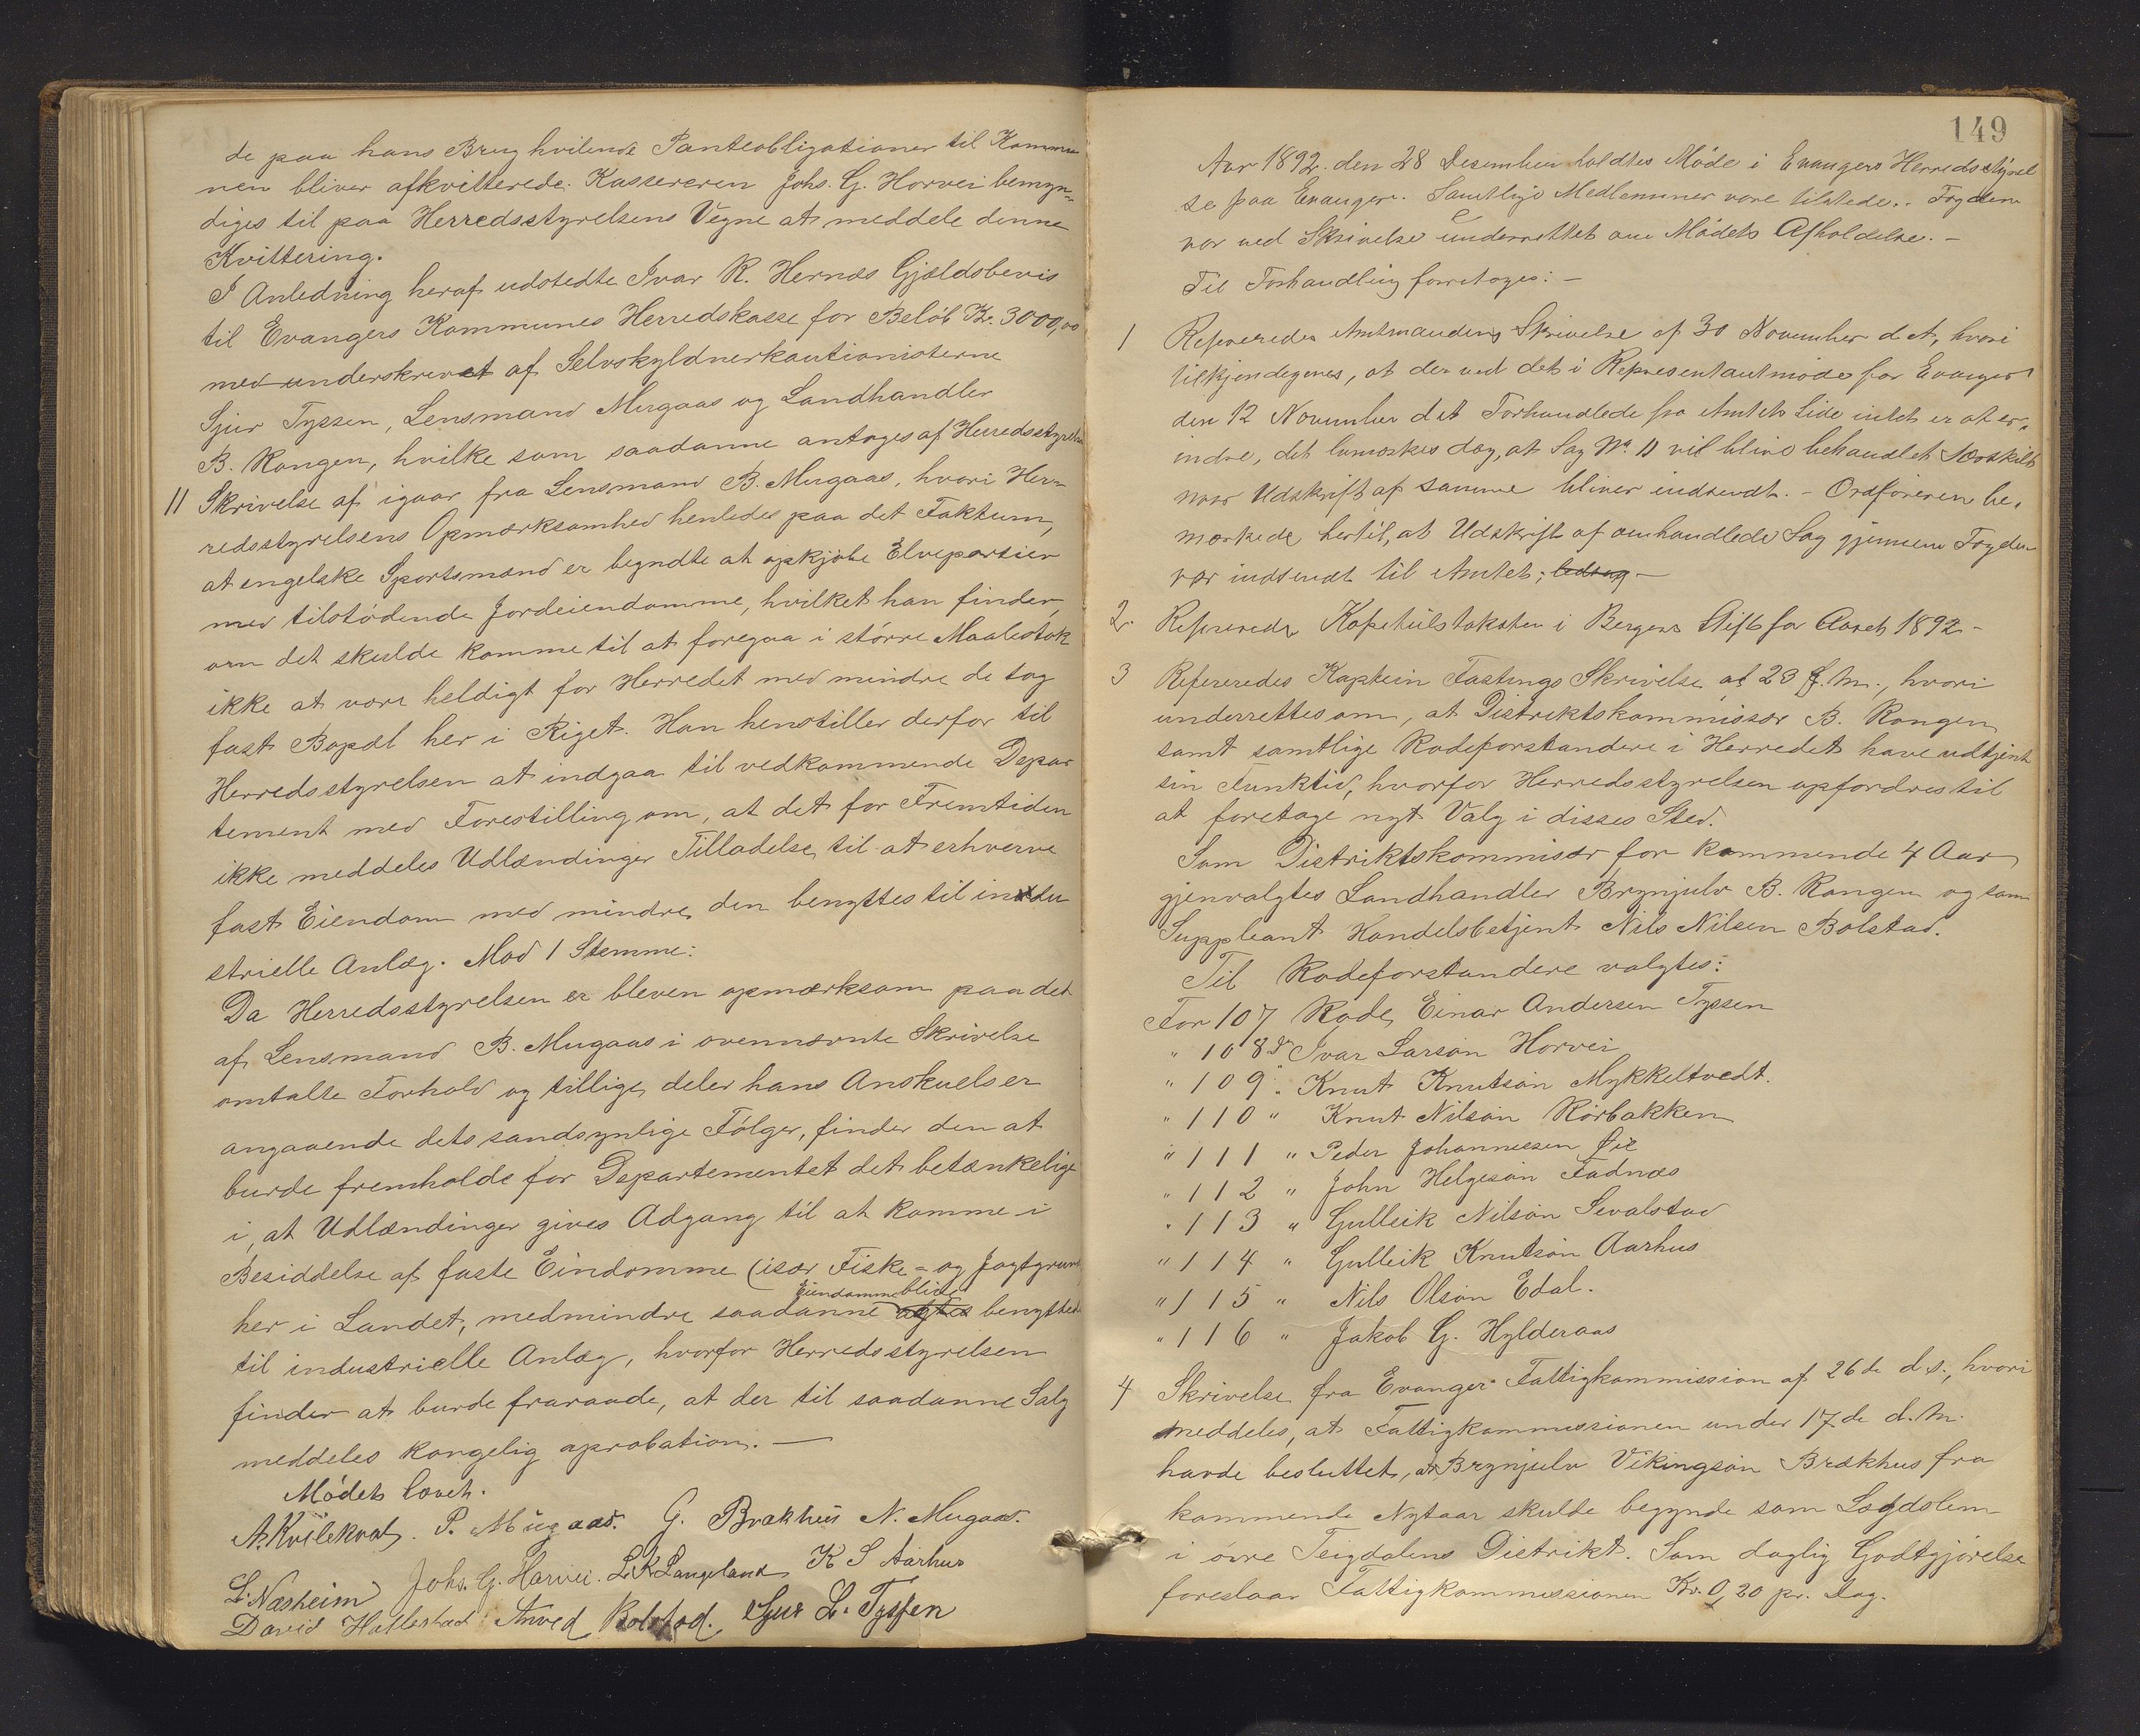 de paa hans Brug hvilende Panteobligationer til Kommu
nen bliver afkvitterede. Kassereren Johs. G. Horvei bemyn-
diges til paa Herredsstyrelsens Vegne at meddele denne
Kvittering.
I Anledning heraf udstedte Ivar R. Hernæs Gjældsbevis
til Evangers Kommunes Herredskasse for Beløb Kr. 3000,00
med underskrevet af Selvskyldnerkautionisterne
Sjur Tyssen, Lensmand Mugaas og Landhandler
B. Rongen, hvilke som saadanne antoges af Herredsstyrelsen
11 Skrivelse af igaar fra Lensmand B. Mugaas, hvori Her-
redsstyrelsens Opmærksomhed henledes paa det Faktum,
at engelske Sportsmænd er begyndte at opkjøbe Elvepartier
med tilstødende Jordeiendomme, hvilket han finder,
om det skulde komme til at foregaa i større Maalestok
ikke at være heldigt for Herredet med mindre de tog
fast Bopæl her i Riget. Han henstiller derfor til
Herredsstyrelsen at indgaa til vedkommende Depar
tement med Forestilling om, at det for Fremtiden
ikke meddeles Udlændinger Tilladelse til at erhverve
fast Eiendom med mindre den benyttes til indu
strielle Anlæg. Mod 1 Stemme:
Da Herredsstyrelsen er bleven opmærksom paa det
af Lensmand B. Mugaas i ovennævnte Skrivelse
omtalte Forhold og tillige deler hans Anskuelser
angaaende dets sandsynlige Følger, finder den at
burde fremholde for Departementet det betænkelige
i, at Udlændinger gives Adgang til at komme i
Besiddelse af faste Eindomme (især Fiske- og Jagtgrund
Eiendomme blive
her i Landet, medmindre saadanne agtes benyttede
til industrielle Anlæg, hvorfor Herredsstyrelsen
finder at burde fraraade, at der til saadanne Salg
meddeles kongelig aprobation. —
Mødet hævet.
A. Kvilekval. P. Mugaas. G. Brækhus N. Mugaas.
L. Næsheim Johs. G. Horvei. L. K. Langeland K S Aarhus
David Hallestad Anved Bolstad. Sjur L. Tyssen
149
Aar 1892 den 28 Desember holdtes Møde i Evangers Herredsstyrel
se paa Evanger. Samtlige Medlemmer vare tilstede. Fogden
var ved Skrivelse underrettet om Mødets Afholdelse. —
Til Forhandling foretoges: —
1 Refereredes Amtmandens Skrivelse af 30 November d. A, hvori
tilkjendegives, at der ved det i Representantmøde for Evanger
den 12 November d A Forhandlede fra Amtets Side intet er at er-
indre, det bemærkes dog, at Sag No. 11 vil blive behandlet særskilt
naar Udskrift af samme bliver indsendt. — Ordføreren be-
mærkede hertil, at Udskrift af omhandlede Sag gjennem Fogden
var indsendt til Amtet; —
2. Refereredes Kapitelstaksten i Bergens Stift for Aaret 1892 —
3 Refereredes Kaptein Fastings Skrivelse af 23 f. M., hvori
underrettes om, at Distriktskommissær B. Rongen
samt samtlige Rodeforstandere i Herredet have udtjent
sin Funktid, hvorfor Herredsstyrelsen opfordres til
at foretage nyt Valg i disses Sted.
Som Distriktskommisær for kommende 4 Aar
gjenvalgtes Landhandler Brynjulv B. Rongen og som
Suppleant Handelsbetjent Nils Nilsen Bolstad.
Til Rodeforstandere valgtes:
For 107 Rode, Einar Andersen Tyssen
" 108 d° Ivar Larsøn Horvei
" 109 " Knut Knutsøn Mykkeltvedt.
" 110 " Knut Nilsøn Rørbakken
" 111 " Peder Johannessen Øie
" 112 " John Helgesøn Fadnæs
" 113 " Gulleik Nilsøn Sevalstad
" 114 " Gulleik Knutsøn Aarhus
" 115 " Nils Olsøn Edal.
" 116 " Jakob G. Hylderaas
4 Skrivelse fra Evanger Fattigkommission af 26de d.s., hvori
meddeles, at Fattigkommissionen under 17de d. M.
havde besluttet, at Brynjulv Vikingsøn Brækhus fra
kommende Nytaar skulde begynde som Lægdslem
i øvre Teigdalens Distrikt. Som daglig Godtgjørelse
foreslaar Fattigkommissionen Kr. 0,20 pr. Dag.